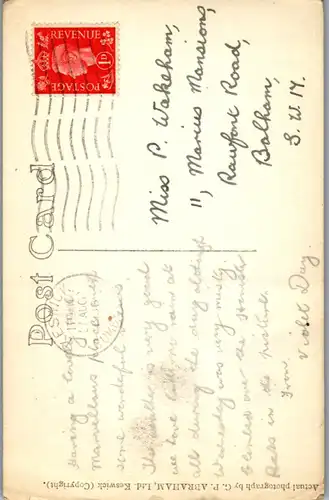 POST CARD
REVENUE
1D
POSTAGE
Miss P. Wakeham,
11, Marius Mansions,
Rowfant Road,
Balham,
S. W. 17.
Having a lovely
Marvellous place &
some wonderful views
The weather is very good
we have had no rain at
all during the day although
Wednesday was very misty
Climbed over the
in the picture.
From
Violet Day
Actual photograph by G. P. ABRAHAM, Ltd. Keswick (Copyright).